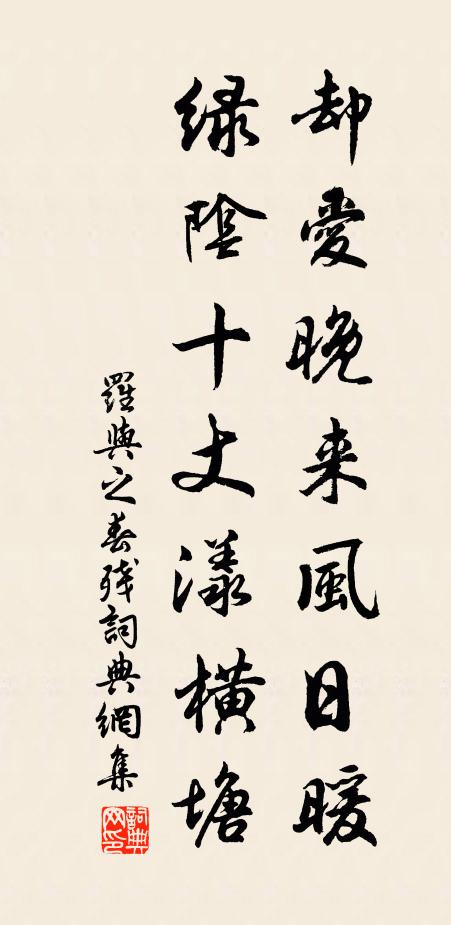 却愛晚来風日暖
緑陰十丈漾横塘
羅與之春残詞典網集
詞典網印